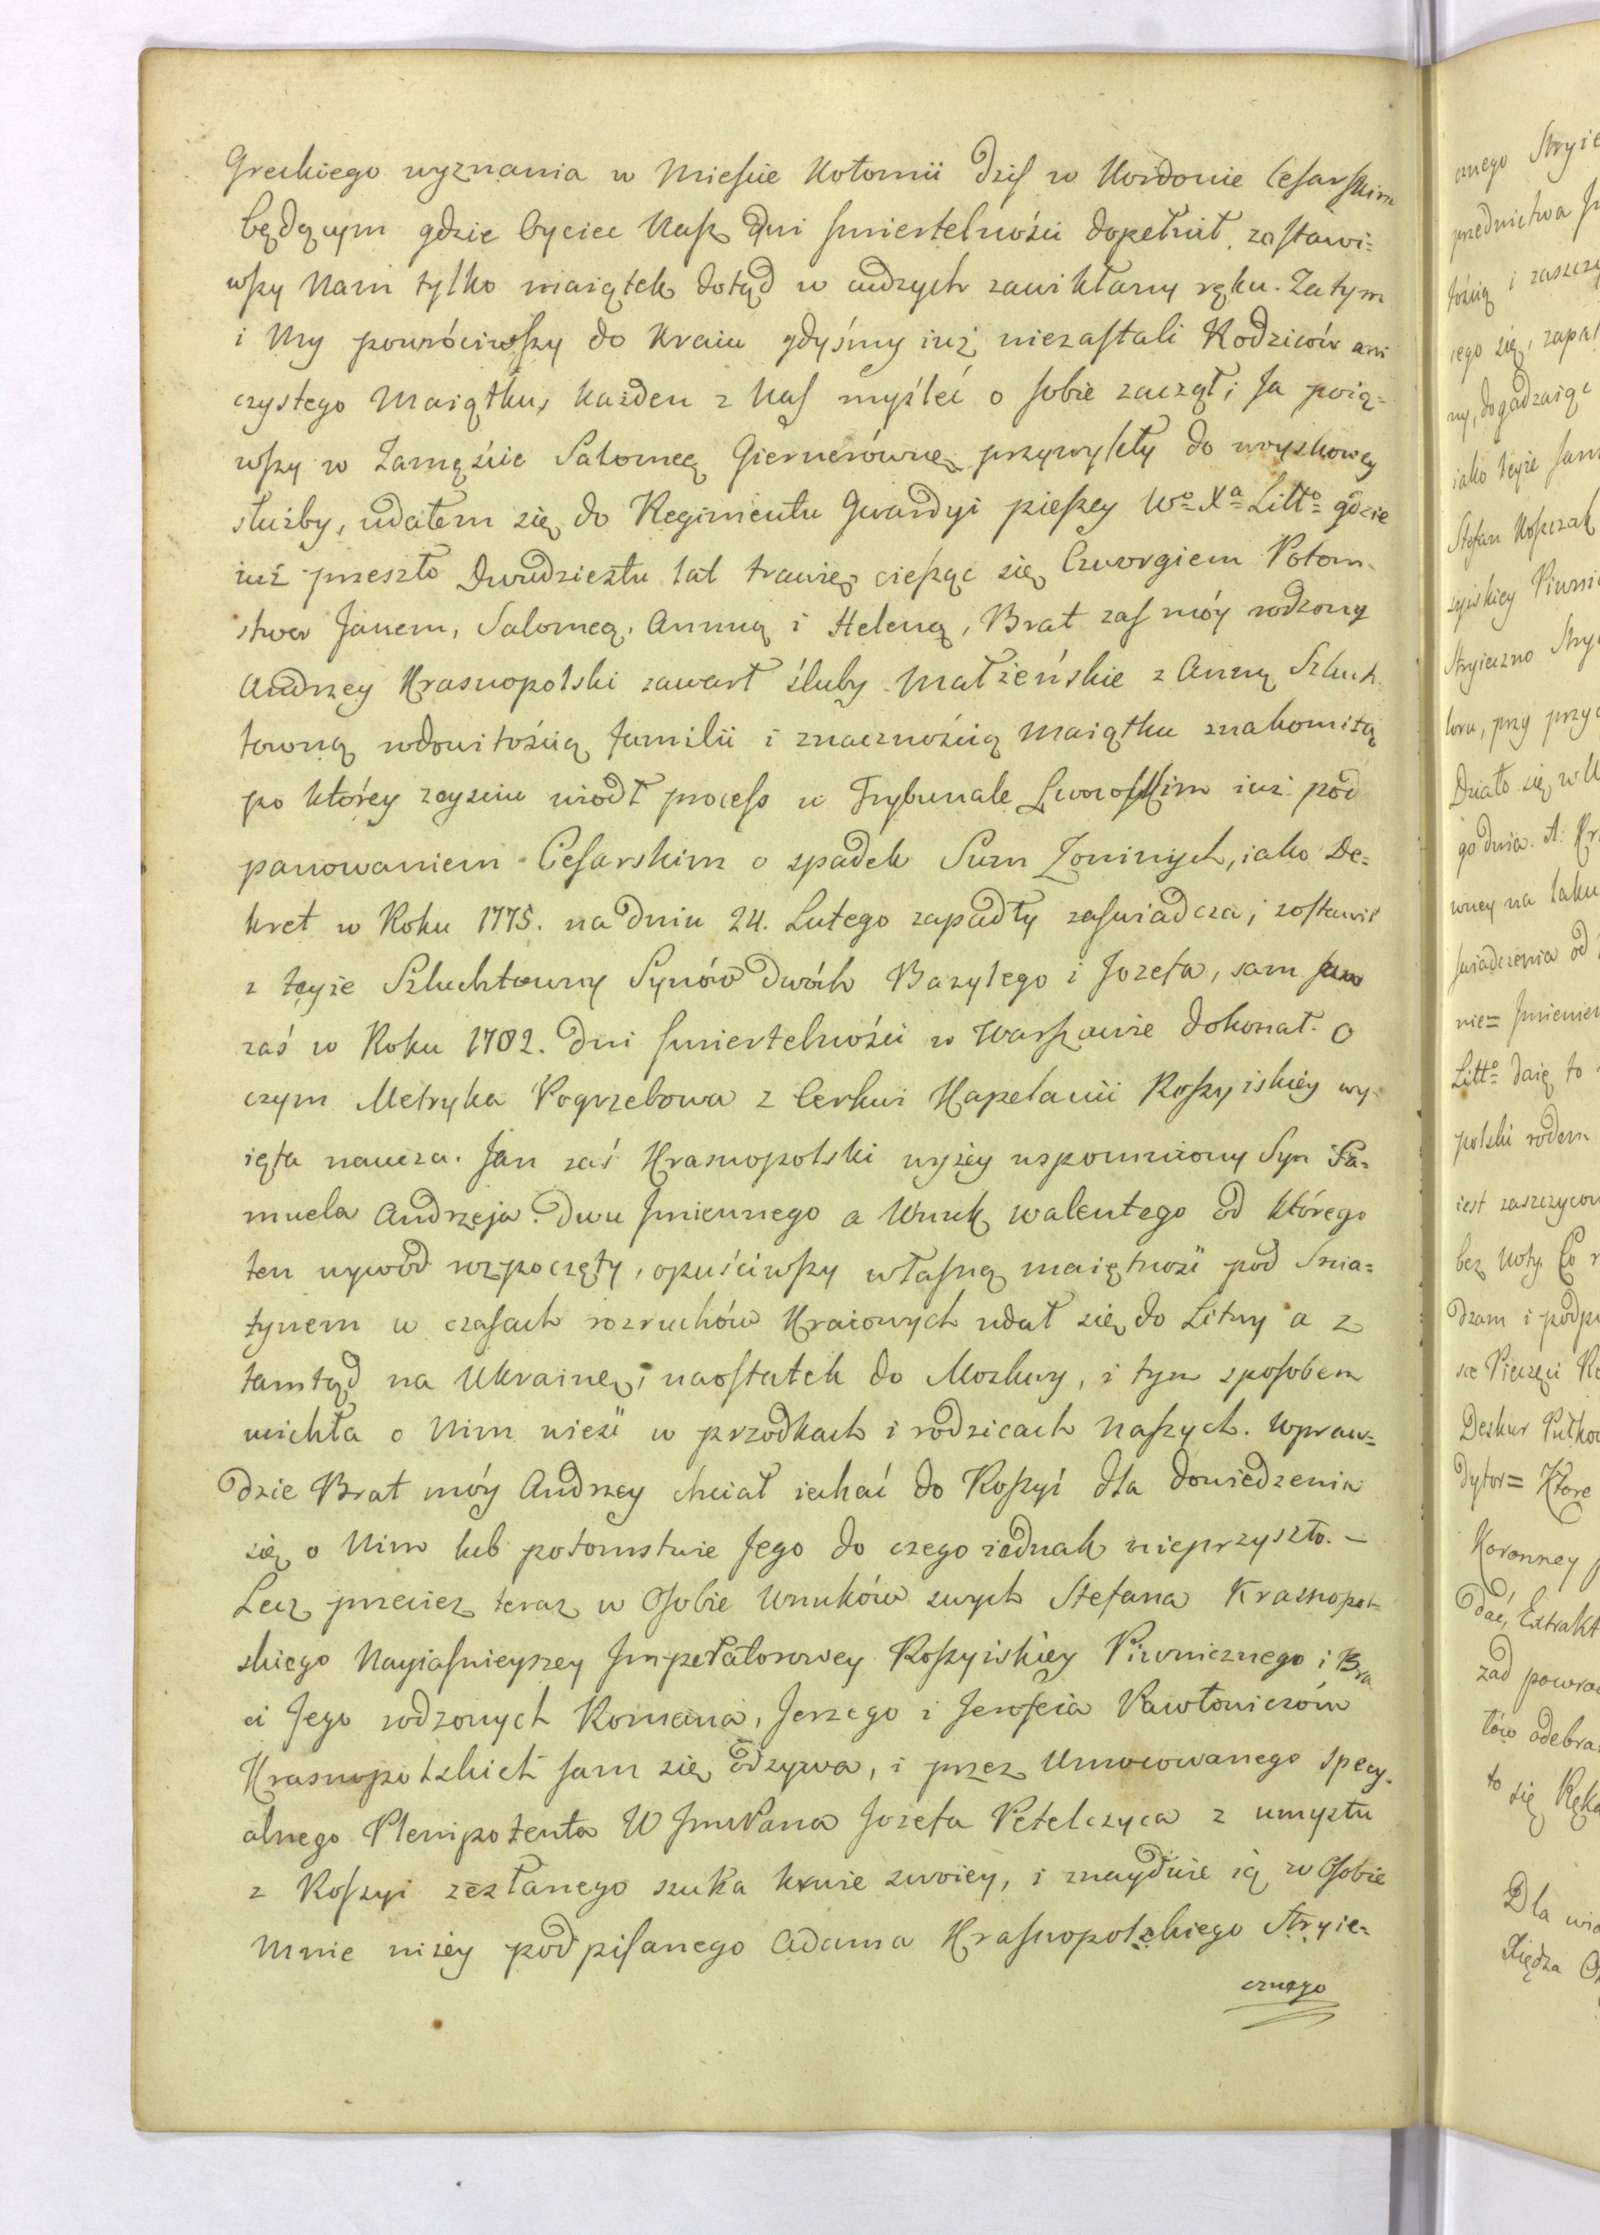 Greckiego wyznania w Mieście Kołomii dziś w Kordonie Cesarskim
będącym gdzie Oyciec Nasz dni śmiertelności dopełnił, zostawi=
wszy Nam tylko maiątek dotąd w cudzych zawikłany ręku. Zatym
i My powróciwszy do Kraiu gdyśmy iuż niezastali Rodziców ani
czystego Maiątku, każden z Nas myśleć o sobie zaczął; Ja poią=
wszy w Zamęście Salomeę Giernerównę przywykły do woyskowey
służby, udałem się do Regimentu Gwardyi pieszey Wo= Xa= Litto= gdzie
iuż przeszło Dwudziestu lat trawię ciesząc się Czworgiem Potom=
stwa Janem, Salomeą, Anną i Heleną, Brat zaś móy rodzony
Andrzey Krasnopolski zawarł śluby Małżeńskie z Anną Szluch=
towną rodowitością familii i znacznością Maiątku znakomitą
po którey zeyściu wiodł process w Trybunale Lwowskim iuż pod
panowaniem Cesarskim o spadek Sum Zoninych, iako De=
kret w Roku 1775. na dniu 24. Lutego zapadły zaświadcza; zostawił
z teyże Szluchtowny Synów dwóch Bazylego i Jozefa, sam
zaś w Roku 1782. dni śmiertelności w Warszawie dokonał. O
czym Metryka Pogrzebowa z Cerkwi Kapelanii Roszyiskiey wy=
ięta naucza. Jan zaś Krasnopolski wyżey wspomniony Syn Sa=
muela Andrzeja dwu Jmiennego a Wnuk Walentego od którego
ten wywód rozpoczęty, opuściwszy własną maiętność pod Śnia=
tynem w czasach rozruchów Kraiowych udał się do Litwy a z
tamtąd na Ukrainę, naostatek do Moskwy, i tym sposobem
ucichła o Nim wieść w przodkach i rodzicach Naszych. Wpraw=
dzie Brat móy Andrzey chciał iechać do Roszyi dla dowiedzenia
się o Nim lub potomstwie Jego do czego iednak nieprzyszło. –
Lecz przecież teraz w Osobie Wnuków swych Stefana Krasnopol=
skiego Nayiaśnieyszey Jmperatorowey Roszyiskiey Piwnicznego i Bra
ci Jego rodzonych Romana, Jerzego i Jerofeia Pawłowiczów
Krasnopolskich sam się odzywa, i przez Umocowanego specy=
alnego Plenipotenta W JmPana Jozefa Petelczyca z umysłu
z Roszyi zesłanego szuka krwie swoiey, i znayduie ią w Osobie
Mnie niżey podpisanego Adama Krasnopolskiego Stryie=
cznego
cznego Stryie
przednictwa
tością i zaszczy
iego się, zapa
ny, dogadzaiąc
iako teyże
Stefan Koszczak
szyiskiey Piwni
Stryieczno Stry
tora, przy przy
Działo się w
go dnia. A: Kr
wney na taku
świadczenia od
nie= Jmieniem
Litto= daię to
polski rodem
iest zaszczycon
bez Noty. Co
dzam i podpi
sce Pieczęci
Deskur Pułko
dytor= Które
Koronney
dać, Extrakt
zad powra
tów odebra
to się Ręką
Dla
Xiędza